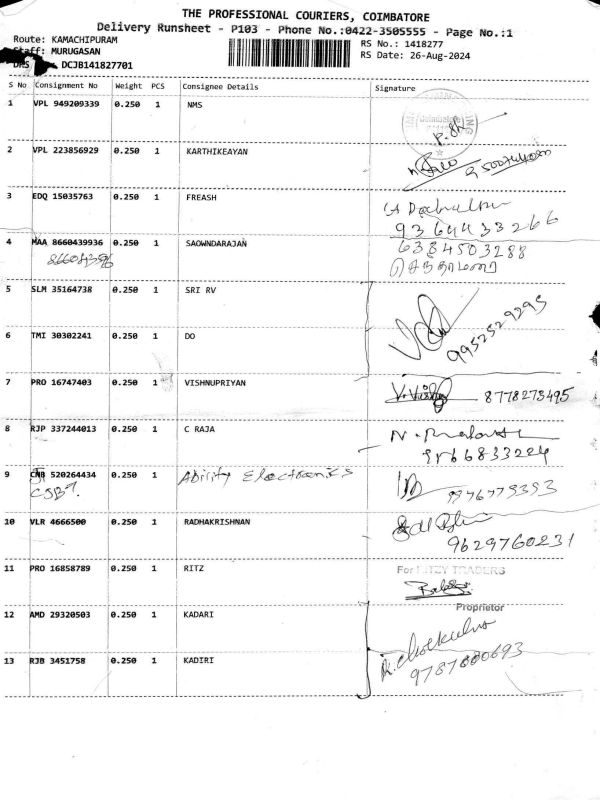 THE PROFESSIONAL COURIERS, COIMBATORE
Delivery Runsheet - P103 - Phone No.:0422-3505555 - Page No.:1
Route: KAMACHIPURAM
RS No.: 1418277
Staff: MURUGASAN
RS Date: 26-Aug-2024
DRS DCJB141827701
S No Consignment No Weight PCS Consignee Details Signature
1 VPL 949209339 0.250 1 NMS
2 VPL 223856929 0.250 1 KARTHIKEAYAN
3 EDQ 15035763 0.250 1 FREASH
9364433266
4 MAA 8660439936 0.250 1 SAOWNDARAJAN 6384503288
செந்தாமரை
5 SLM 35164738 0.250 1 SRI RV
9952529295
6 TMI 30302241 0.250 1 DO
7 PRO 16747403 0.250 1 VISHNUPRIYAN V.Vishnu 8778273495
8 RJP 337244013 0.250 1 C RAJA
9 CNB 520264434 0.250 1 Ability Electronics
CSB?
10 VLR 4666500 0.250 1 RADHAKRISHNAN
9629760231
11 PRO 16858789 0.250 1 RITZ For RITZY TRADERS
Proprietor
12 AMD 29320503 0.250 1 KADARI
13 RJB 3451758 0.250 1 KADIRI